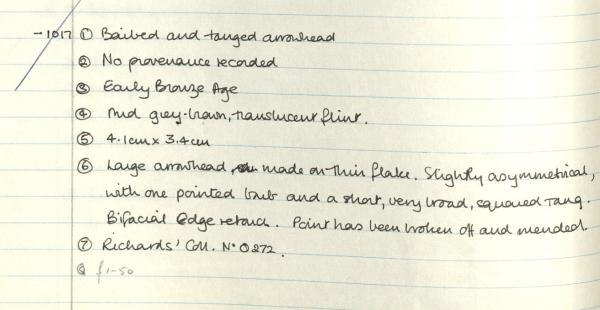 -1017 ① Barbed and tanged arrowhead
② No provenance recorded
③ Early Bronze Age
④ Mid grey-brown, translucent flint.
⑤ 4.1cm x 3.4cm
⑥ Large arrowhead, made on thin flake. Slightly asymmetrical,
with one pointed barb and a short, very broad, squared tang.
Bifacial Edge retouch. Point has been broken off and mended.
⑦ Richards' Coll. No 0272.
⑧ £1-50